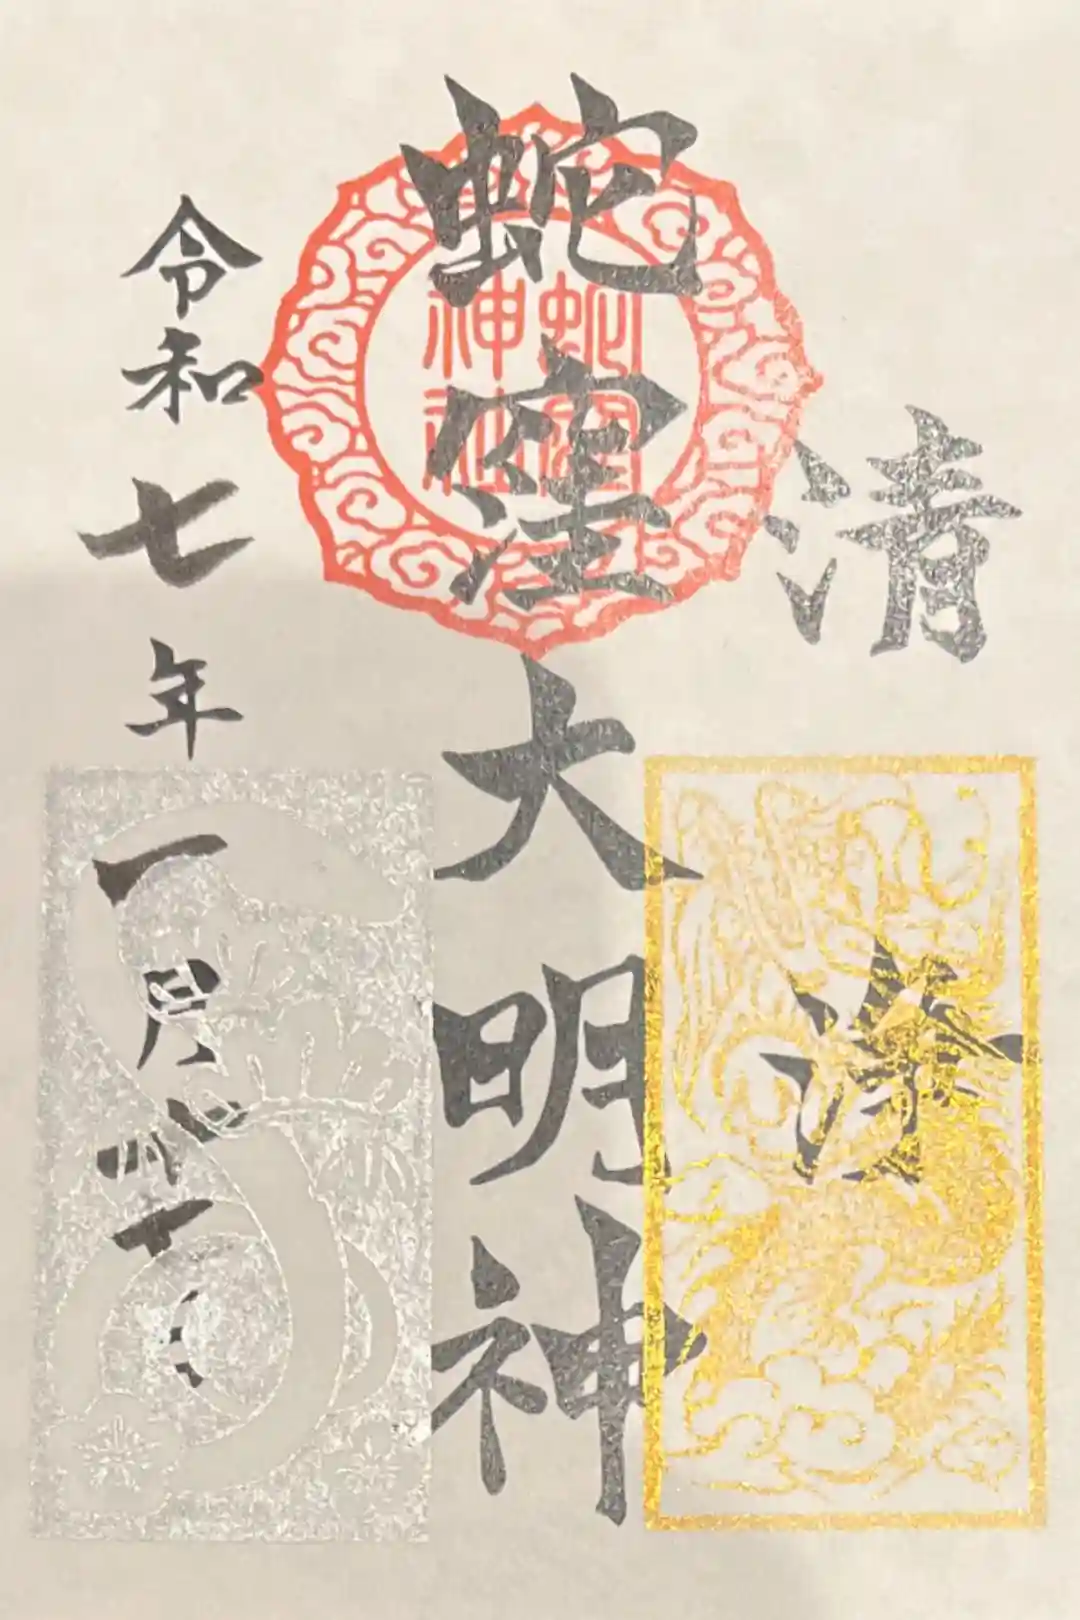 清
蛇窪大明神
蛇窪
神社
令和七年一月